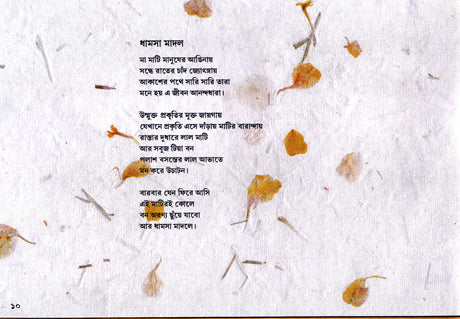 ধামসা মাদল
মা মাটি মানুষের আঙিনায়
সন্ধে রাতের চাঁদ জ্যোৎস্নায়
আকাশের পথে সারি সারি তারা
মনে হয় এ জীবন আনন্দধারা।
উন্মুক্ত প্রকৃতির মুক্ত জায়গায়
যেখানে প্রকৃতি এসে দাঁড়ায় মাটির বারান্দায়
রাস্তার দুধারে লাল মাটি
আর সবুজ টিয়া বন
পলাশ বসন্তের লাল আভাতে
মন করে উচাটন।
বারবার যেন ফিরে আসি
এই মাটিরই কোলে
বন অরণ্য ছুঁয়ে যাবো
আর ধামসা মাদলে।
১০